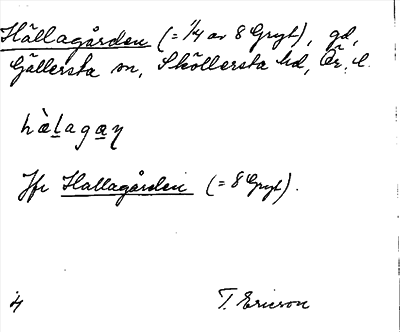 Hällagården (= 1/4 av 8 Gryt), gd,
Gällersta sn, Sköllersta hd, Ör. l.
hàlagaŋ
Jfr Hallagården (= 8 Gryt).
T. Ericson